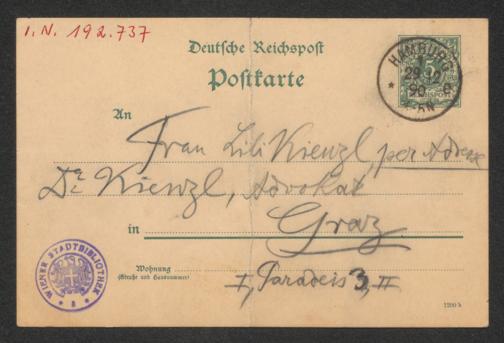 I. N. 192.737
Deutsche Reichspost
Postkarte
HAMBURG
1
29 12
90
5
An
Frau Lili Kienzl, per Adresse
Dr. Kienzl, Advokat
in Graz
Wohnung
(Straße und Hausnummer)
I, Paradeis 3, II
WIENER STADTBIBLIOTHEK
1290 b